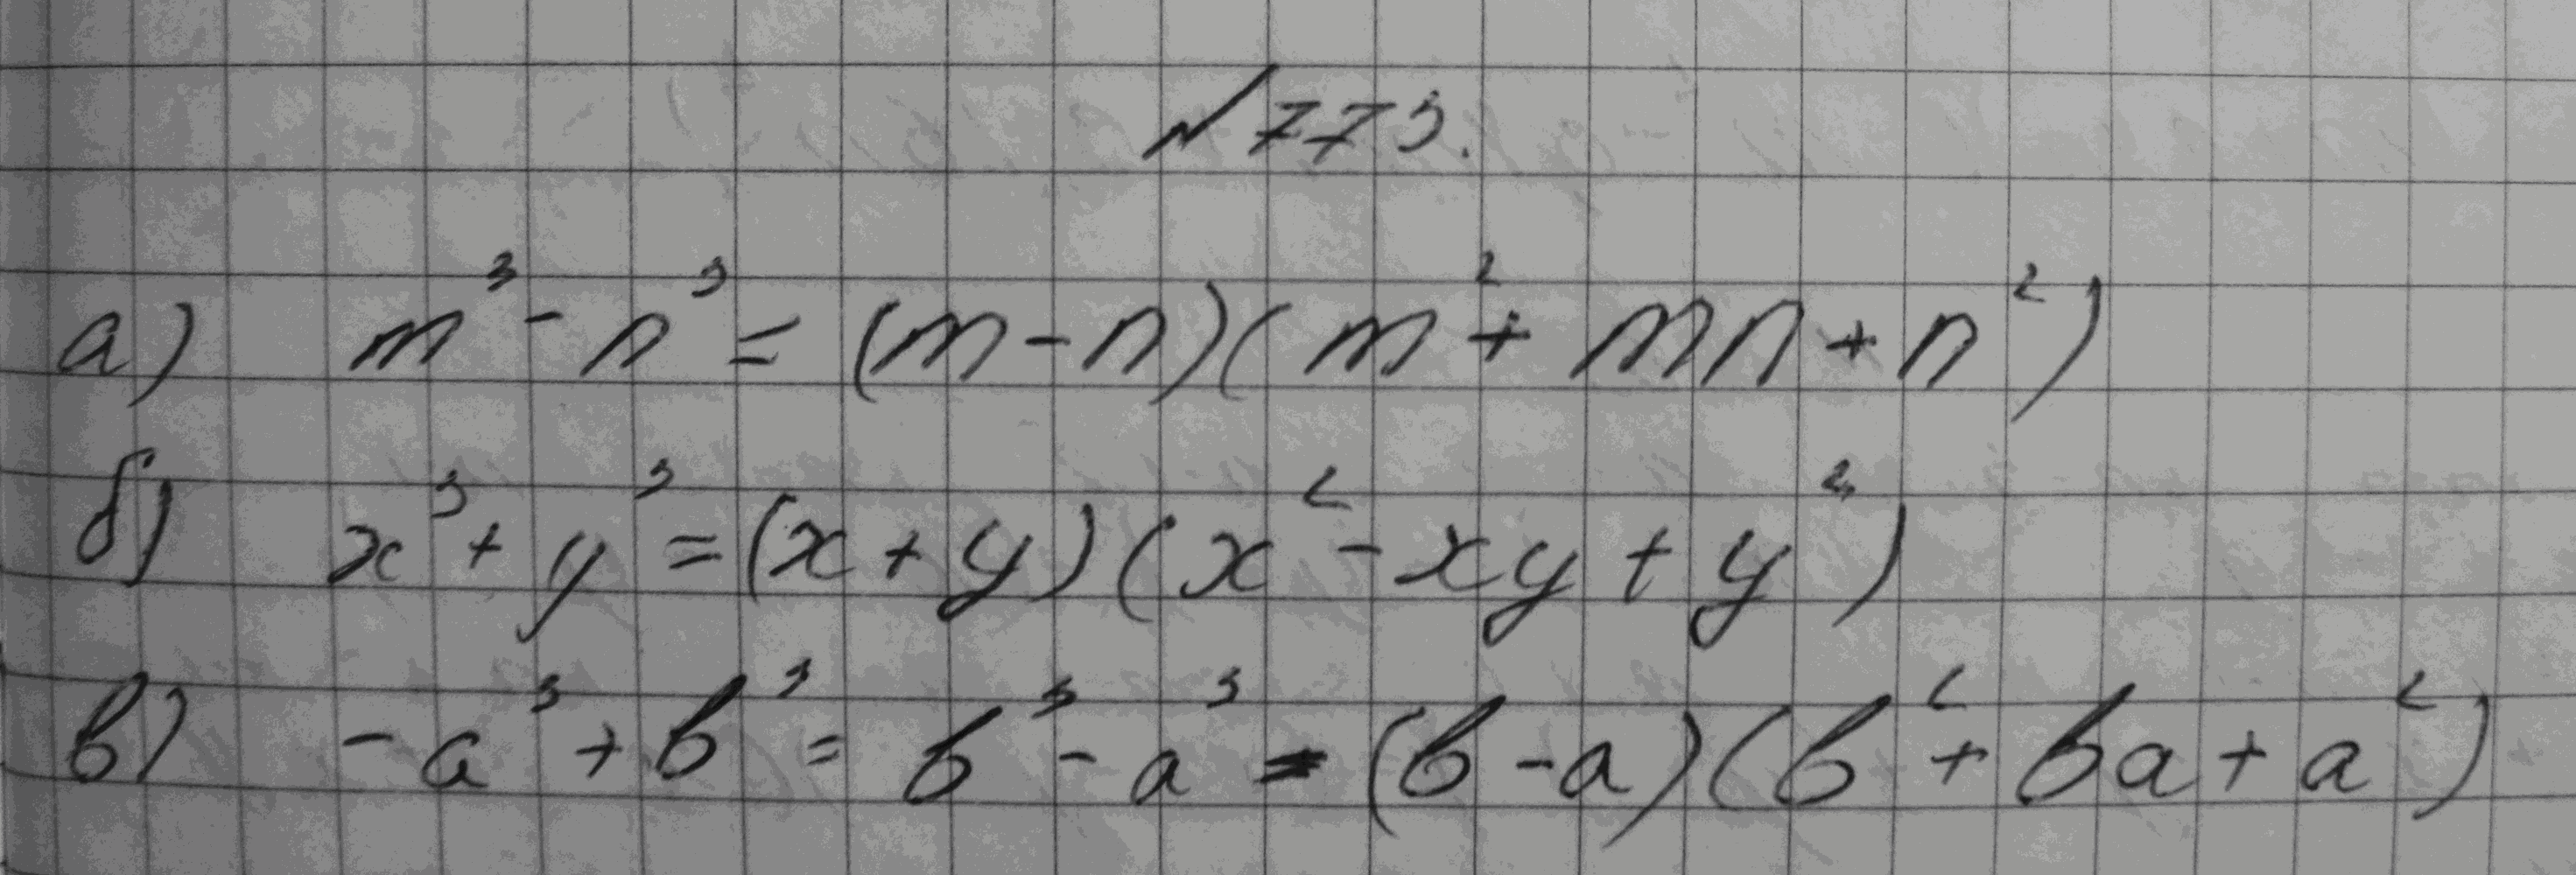 №773.
а) m³ - n³ = (m-n)(m² + mn + n²)
б) x³ + y³ = (x + y)(x² - xy + y²)
в) -a³ + b³ = b³ - a³ = (b - a)(b² + ba + a²)